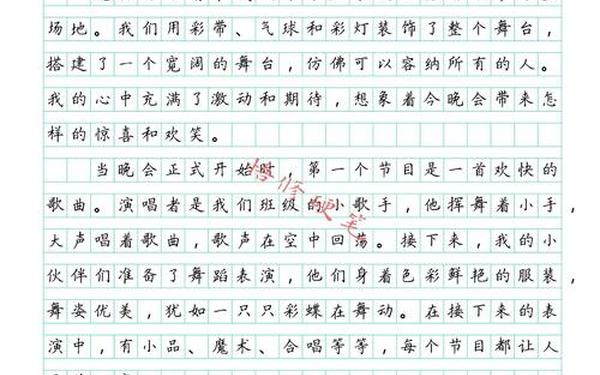 场地。我们用彩带、气球和彩灯装饰了整个舞台，
搭建了一个宽阔的舞台，仿佛可以容纳所有的人。
我的心中充满了激动和期待，想象着今晚会带来怎
样的惊喜和欢笑。
当晚会正式开始时，第一个节目是一首欢快的
歌曲。演唱者是我们班级的小歌手，他挥舞着小手，
大声唱着歌曲，歌声在空中回荡。接下来，我的小
伙伴们准备了舞蹈表演，他们身着色彩鲜艳的服装，
舞姿优美，犹如一只只彩蝶在舞动。在接下来的表
演中，有小品、魔术、合唱等等，每个节目都让人
悟修硬笔